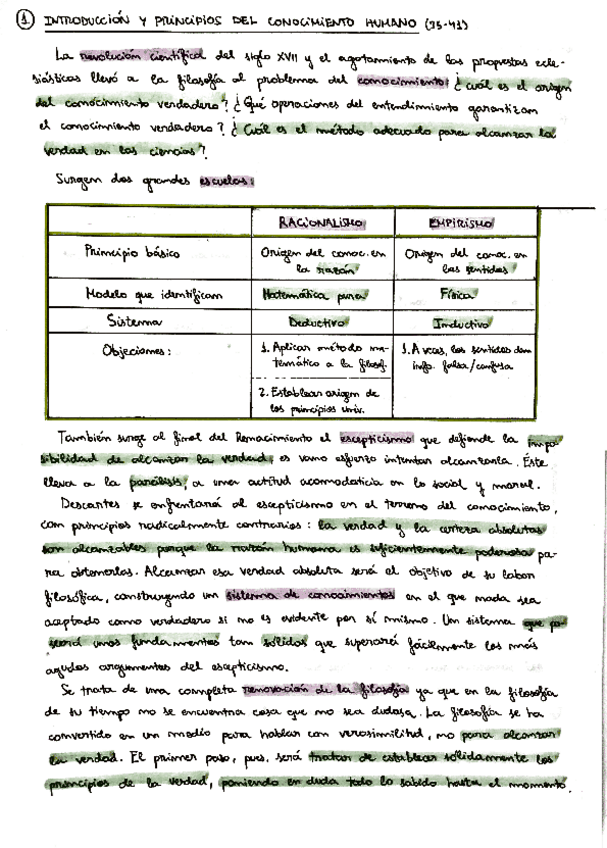 1. INTRODUCCIÓN Y PRINCIPIOS DEL CONOCIMIENTO HUMANO (35-41)
La revolución científica del siglo XVII y el agotamiento de las propuestas ecle-
siásticas llevó a la filosofía al problema del conocimiento: ¿cuál es el origen
del conocimiento verdadero? ¿Qué operaciones del entendimiento garantizan
el conocimiento verdadero? ¿Cuál es el método adecuado para alcanzar la
verdad en las ciencias?
Surgen dos grandes escuelas:
RACIONALISMO EMPIRISMO
Principio básico Origen del conoc. en la razón Origen del conoc. en los sentidos
Modelo que identifican Matemática pura Física
Sistema Deductivo Inductivo
Objeciones: 1. Aplicar método ma- 1. A veces, los sentidos dan
temático a la filosof. info. falsa/confusa
2. Establecer origen de
los principios univ.
También surge al final del Renacimiento el escepticismo que defiende la impo-
sibilidad de alcanzar la verdad, es vano esfuerzo intentar alcanzarla. Éste
lleva a la parálisis, a una actitud acomodaticia en lo social y moral.
Descartes se enfrentará al escepticismo en el terreno del conocimiento,
con principios radicalmente contrarios: la verdad y la certeza absolutas
son alcanzables porque la razón humana es suficientemente poderosa pa-
ra obtenerlas. Alcanzar esa verdad absoluta será el objetivo de su labor
filosófica, construyendo un sistema de conocimientos en el que nada sea
aceptado como verdadero si no es evidente por sí mismo. Un sistema que po-
seerá unos fundamentos tan sólidos que superará fácilmente los más
agudos argumentos del escepticismo.
Se trata de una completa renovación de la filosofía ya que en la filosofía
de su tiempo no se encuentra cosa que no sea dudosa. La filosofía se ha
convertido en un medio para hablar con verosimilitud, no para alcanzar
la verdad. El primer paso, pues, será tratar de establecer sólidamente los
principios de la verdad, poniendo en duda todo lo sabido hasta el momento.